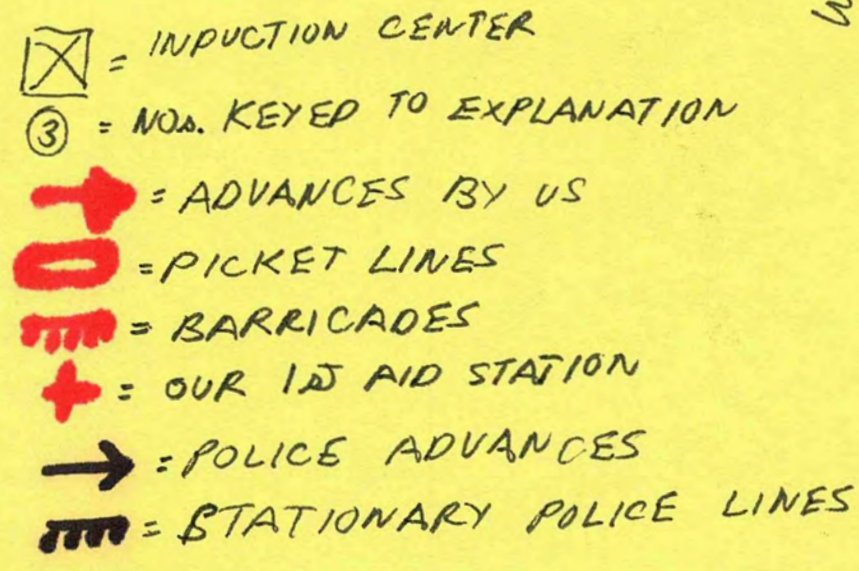 = INDUCTION CENTER
③ = NOs. KEYED TO EXPLANATION
= ADVANCES BY US
= PICKET LINES
= BARRICADES
= OUR 1st AID STATION
= POLICE ADVANCES
= STATIONARY POLICE LINES